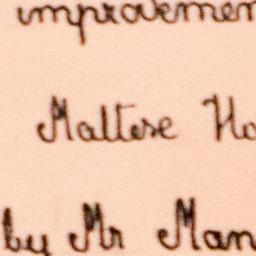 improvemen
Maltese Ho
by Mr Man